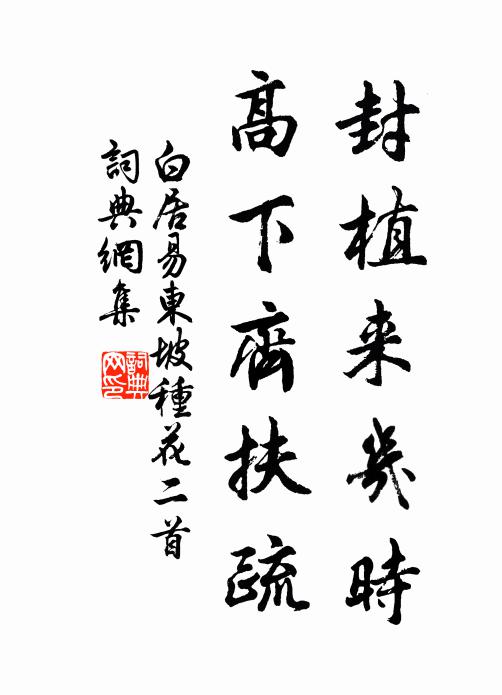 封植来幾時
高下齊扶疏
白居易東坡種花二首
詞典網集
詞典網印